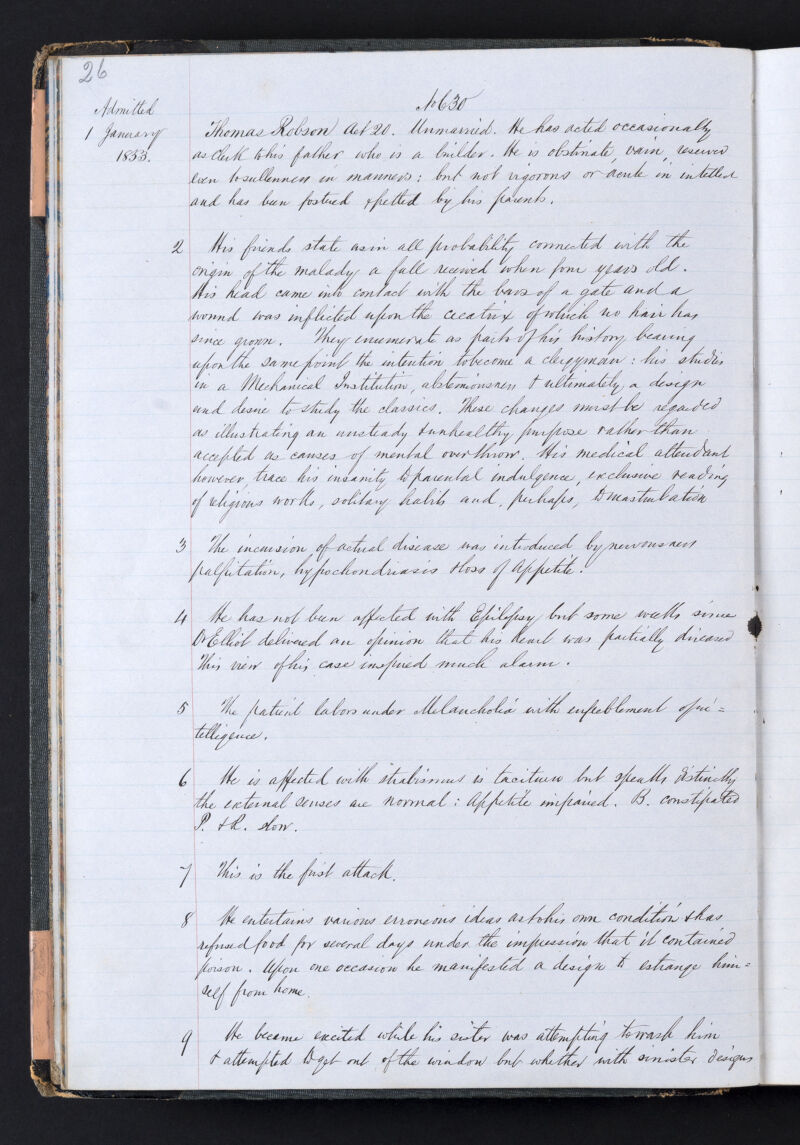 26
No 630
Admitted
1 January
1853.
Thomas Robson Aet 20. Unmarried. He has acted occasionally
as Clerk to his father who is a builder. He is obstinate, vain, reserved
even to sullenness in manners: but not vigorous or acute in intellect
and has been fostered & petted by his parents.
2 His friends state as in all probability connected with the
origin of the malady a fall received when four years old.
His head came into contact with the bars of a gate and a
wound was inflicted upon the cicatrix of which no hair has
since grown. They enumerate as parts of his history bearing
upon the same point the intention to become a clergyman: his studies
in a Mechanical Institution, abstemiousness & ultimately, a design
and desire to study the classics. These changes must be regarded
as illustrating an unsteady & unhealthy purpose rather than
accepted as causes of mental overthrow. His medical attendant
however, trace his insanity to parental indulgence, exclusive reading
of religious works, solitary habits and, perhaps, to masturbation
3 The incursion of actual disease was introduced by nervousness
palpitation, hypochondriasis & loss of appetite.
4 He has not been affected with Epilepsy but some weeks since
Dr Elliot delivered an opinion that his heart was partially diseased
This view of his case inspired much alarm.
5 The patient labors under Melancholia with enfeeblement of in=
telligence.
6 He is affected with strabismus is taciturn but speaks distinctly
the external senses are normal: Appetite impaired. B. constipated
P. & R. slow.
7 This is the first attack.
8 He entertains various erroneous ideas as to his own condition & has
refused food for several days under the impression that it contained
poison. Upon one occasion he manifested a design to estrange him=
self from home.
9 He became excited while his sister was attempting to wash him
& attempted to get out of the window but whether with sinister designs